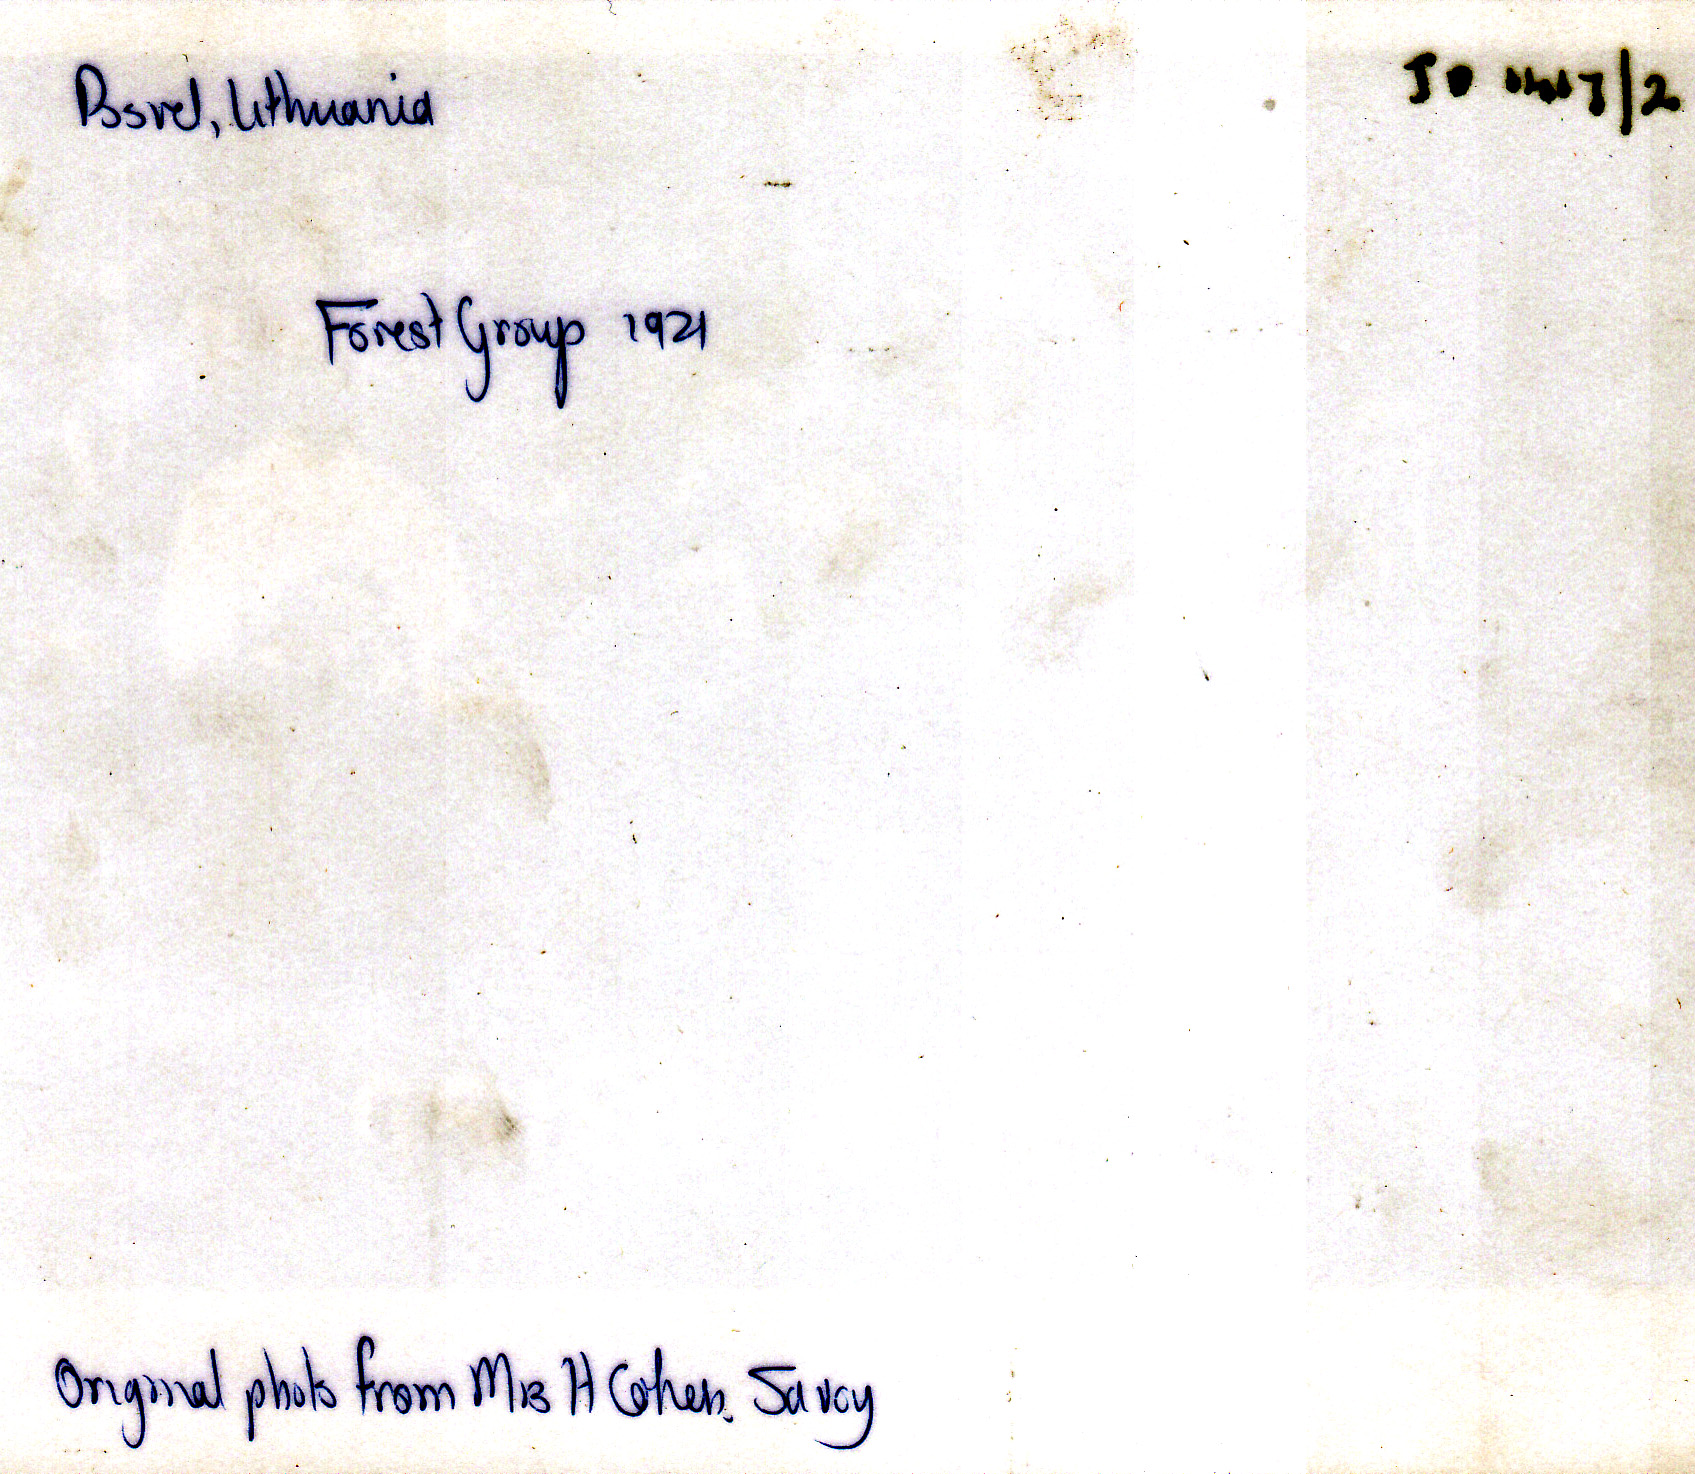 Posvel, Lithuania
Forest Group 1921
Original photo from Mrs H Cohen, Savoy